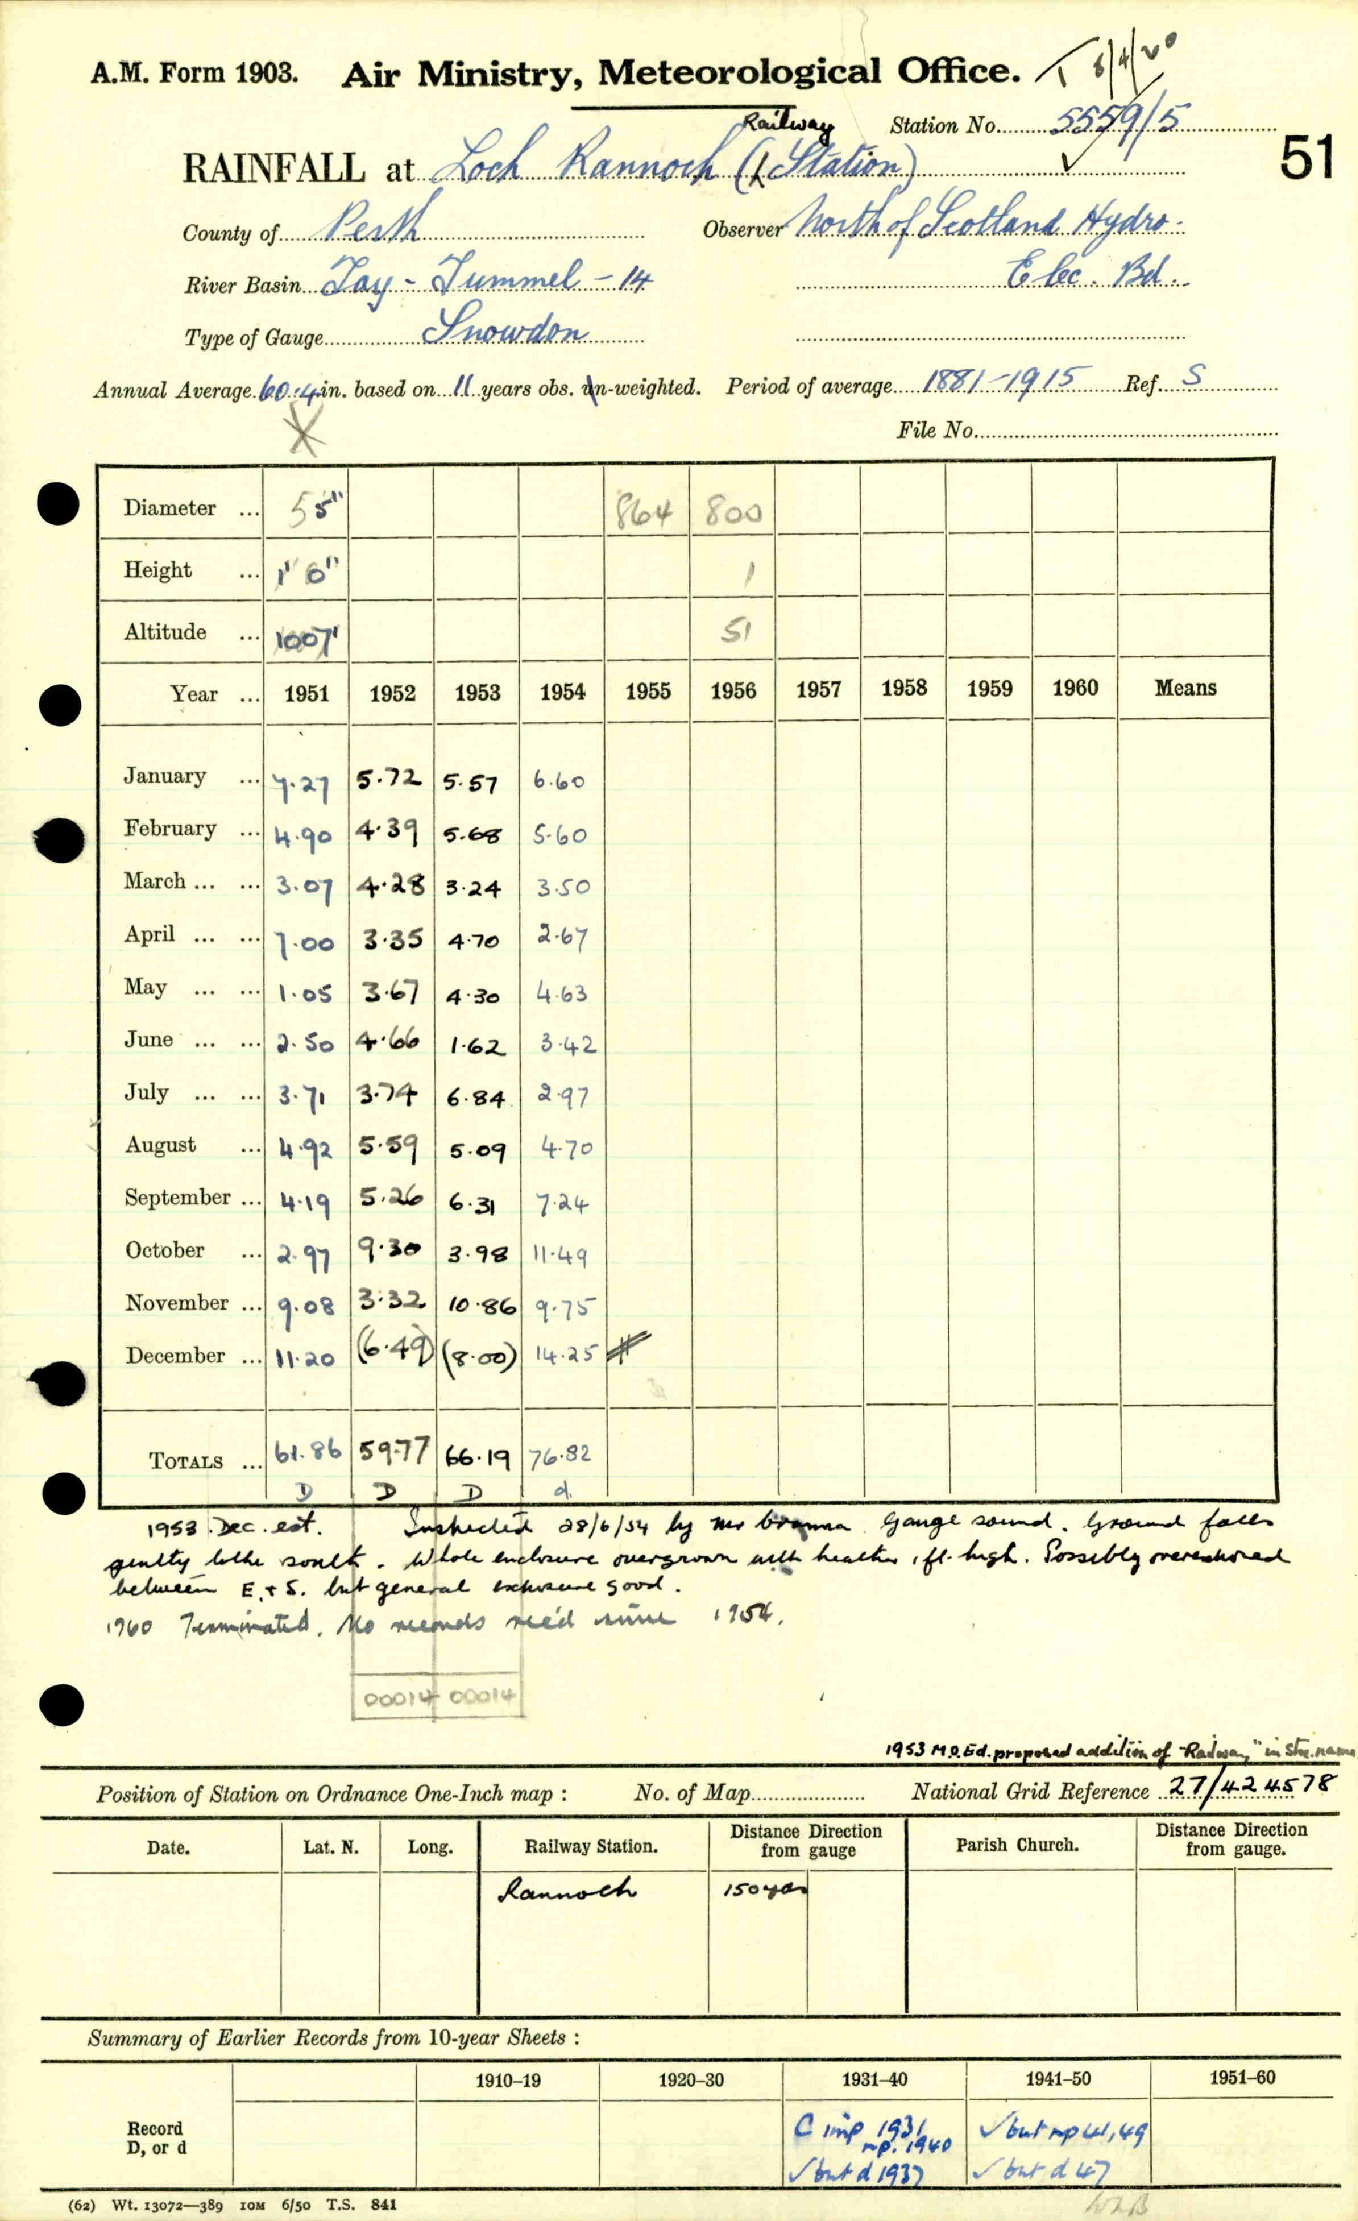 A.M. Form 1903. Air Ministry, Meteorological Office. T 8/4/20
Station No. 5559/5
51
RAINFALL at Loch Rannoch (Railway Station)
County of Perth Observer North of Scotland Hydro-
River Basin Tay - Tummel - 14 Elec. Bd.
Type of Gauge Snowdon
Annual Average 60.4 in. based on 11 years obs. un-weighted. Period of average 1881-1915 Ref. S
File No.
Diameter ... 5" 864 800
Height ... 1' 0" 1
Altitude ... 1007' 51
Year ... 1951 1952 1953 1954 1955 1956 1957 1958 1959 1960 Means
January ... 7.27 5.72 5.57 6.60
February ... 4.90 4.39 5.68 5.60
March ... ... 3.07 4.28 3.24 3.50
April ... ... 7.00 3.35 4.70 2.67
May ... ... 1.05 3.67 4.30 4.63
June ... ... 2.50 4.66 1.62 3.42
July ... ... 3.71 3.74 6.84 2.97
August ... 4.92 5.59 5.09 4.70
September ... 4.19 5.26 6.31 7.24
October ... 2.97 9.30 3.98 11.49
November ... 9.08 3.32 10.86 9.75
December ... 11.20 (6.49) (8.00) 14.25
TOTALS ... 61.86 59.77 66.19 76.82
D D D d
1953 Dec. est. Inspected 28/6/54 by Mr Gauge sound. Ground falls
gently to the south. Whole enclosure overgrown with heather 1 ft. high. Possibly
between E. & S. but general exposure good.
1960 Terminated. No records rec'd since 1954.
00014 00014
1953 M.O. Ed. proposed addition of "Railway" in stn. name
Position of Station on Ordnance One-Inch map : No. of Map National Grid Reference 27/424578
Date. Lat. N. Long. Railway Station. Distance Direction from gauge Parish Church. Distance Direction from gauge.
Rannoch 150 yds
Summary of Earlier Records from 10-year Sheets :
1910–19 1920–30 1931–40 1941–50 1951–60
Record C imp 1931 ✓ but np 41, 49
D, or d np. 1940
✓ but d 1937 ✓ but d 47
(62) Wt. 13072—389 10M 6/50 T.S. 841